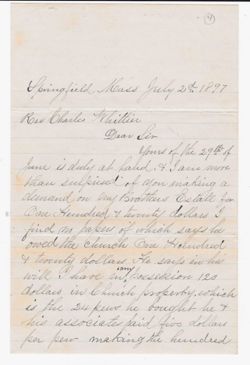 4
Springfield Mass July 2th 1897
Rev Charles Whittier
Dear Sir
Yours of the 29th of
June is duly at hand & I am more
than surprised of you making a
demand on my Brothers Estate for
One Hundred & twenty dollars I
find no papers of which says he
owed the Church One Hundred
& twenty dollars. He says in his
will I have in my possession 120
dollars in Church property, which
is the 24 pews he bought he &
his associates paid five dollars
per pew making the hundred